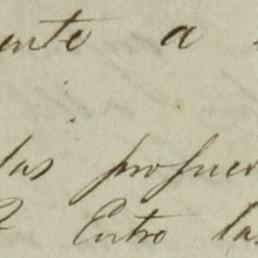 ente a
las propues
Entro la